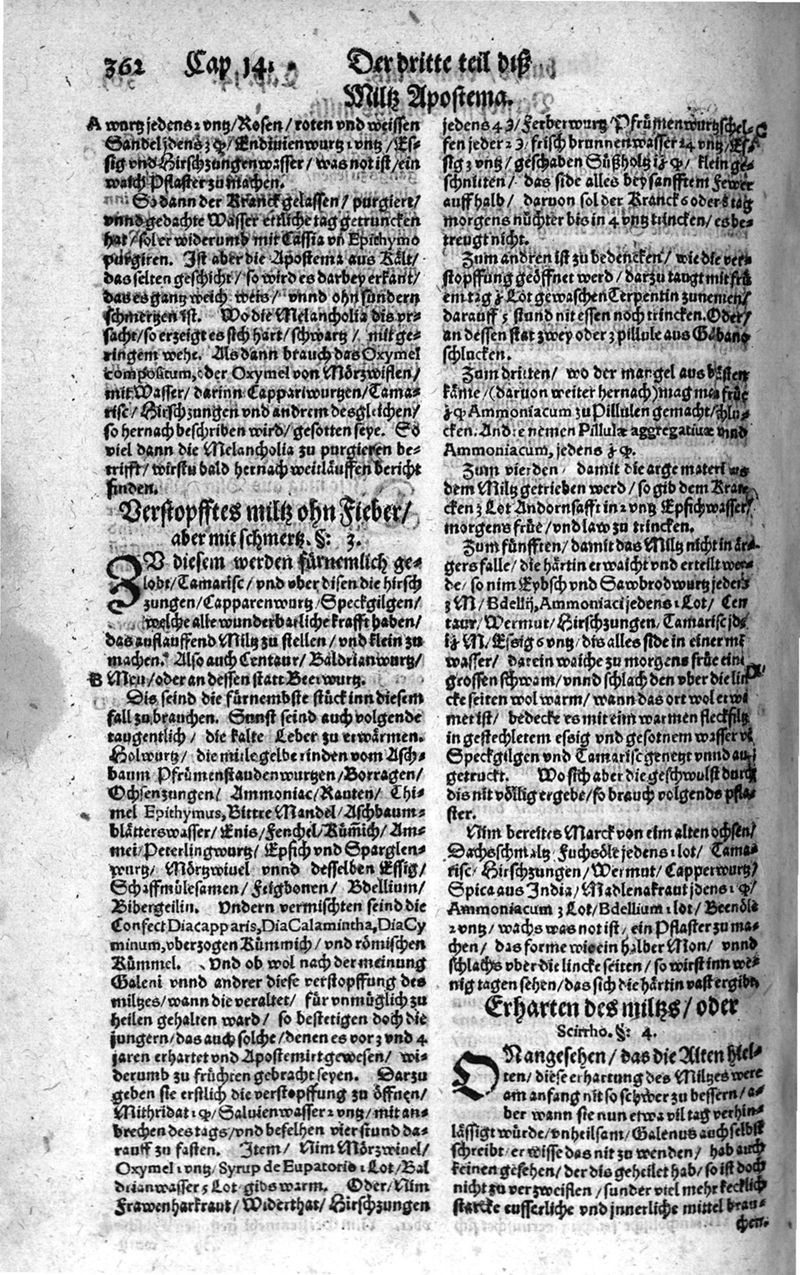 362 Cap 14. Der dritte teil diß
Miltz Apostema.
A wurtz jedens 2 vntz/Rosen/ roten vnd weissen
Sandel jdens ʒ ꝙ/Endiuienwurtz 1 vntz/Es-
sig vnd Hirschzungenwasser/ was not ist/ein
waich Pflaster zu machen.
So dann der Kranck gelassen/ purgiert/
vnnd gedachte Wasser ettliche tag getruncken
hat/ sol er widerumb mit Cassia vñ Epithymo
purgiren. Ist aber die Apostema aus Kält/
das selten geschicht/ so wird es darbey erkant/
das es gantz weich weis/ vnnd ohn sundern
schmertzen ist. Wo die Melancholia dis vr-
sacht/so erzeigt es sich hart/schwartz/ mit ge-
ringem wehe. Als dann brauch das Oxymel
compositum, oder Oxymel von Mörzwiflen/
mit Wasser/ darinn Cappariwurtzen/Tama-
risc/Hirschzungen vnd andrem desgleichen/
so hernach beschriben wird/ gesotten seye. So
viel dann die Melancholia zu purgieren be-
trifft/ wirstu bald hernach weitläuffen bericht
finden.
Verstopfftes miltz ohn Fieber/
aber mit schmertz. §: 3.
ZV diesem werden fürnemlich ge-
lobt/Tamarisc/ vnd vber disen die hirsch
zungen/Capparenwurtz/Speckgilgen/
welche alle wunderbarliche krafft haben/
das aufflauffend Miltz zu stellen/ vnd klein zu
machen. Also auch Centaur/ Baldrianwurtz/
B Meu/oder an dessen statt Beerwurtz.
Dis seind die fürnembste stück inn diesem
fall zu brauchen. Sunst seind auch volgende
taugentlich/ die kalte Leber zu erwärmen.
Holwurtz/ die mitle gelbe rinden vom Asch-
baum Pfrümenstaudenwurtzen/Borragen/
Ochsenzungen/ Ammoniac/Rauten/ Thi-
mel Epithymus, Bittre Mandel/Aschbaum-
blätterswasser/Enis/Fenchel/Kümich/Am-
mei/Peterlingwurtz/Epfich vnd Sparglen-
wurtz/ Mörtzwiuel vnnd desselben Essig/
Schaffmülesamen/ Feigbonen/ Bdellium/
Bibergeilin. Vndern vermischten seind die
Confect Diacapparis, DiaCalamintha, DiaCy
minum, vberzogen Kümmich/ vnd römischen
Kümmel. Vnd ob wol nach der meinung
Galeni vnnd andrer diese verstopffung des
miltzes/wann die veraltet/ für vnmüglich zu
heilen gehalten ward/ so bestetigen doch die
jungern/das auch solche/denen es vor 3 vnd 4
jaren erhartet vnd Apostemirt gewesen/ wi-
derumb zu früchten gebracht seyen. Darzu
geben sie erstlich die verstopffung zu öffnen/
Mithridat 1 ꝙ/Saluienwasser 2 vntz/mit an-
brechen des tags/vnd befelhen vier stund da-
rauff zu fasten. Item/ Nim Mörzwiuel/
Oxymel 1 vntz/Syrup de Eupatorio 1 Lot/Bal
drianwasser 3 Lot gids warm. Oder/Nim
Frawenharkraut/Widerthat/Hirschzungen
jedens 4 ʒ/Ferberwurtz Pfrümenwurtzschel-
fen jeder 2 ʒ/ frisch brunnenwasser 24 vntz/Es-
sig 3 vntz/geschaben Süßholtz iʒ ꝙ/ klein ge-
schnitten/ das side alles bey sanfftem Fewer
auff halb/ daruon sol der Kranck 8 oder 5 tag
morgens nüchter bis in 4 vntz trincken/ es be-
treugt nicht.
Zum andren ist zu bedencken/ wie die ver-
stopffung geöffnet werd/darzu taugt mit frü
em tag ʒ Lot gewaschen Terpentin zunemen/
darauff 5 stund nit essen noch trincken. Oder/
an dessen stat zwey oder 3 pillule aus Galban
schlucken.
Zum dritten/ wo der mangel aus bästen
käme/(daruon weiter hernach)mag man früe
ʒ ꝙ Ammoniacum zu Pillulen gemacht/schlu-
cken. Andre nemen Pillulæ aggregatiuæ vnd
Ammoniacum, jedens ʒ ꝙ.
Zum vierden/ damit die arge materi aus
dem Miltz getrieben werd/ so gib dem Kran-
cken 3 Lot Andornsafft in 2 vntz Epfichwasser/
morgens früe/vnd law zu trincken.
Zum fünfften/damit das Miltz nicht in är-
gers falle/ die härtin erwaicht vnd erteilt wer-
de/ so nim Eybsch vnd Sawbrodwurtz jedens
3 M/Bdellij, Ammoniaci jedens 1 Lot/ Cen
taur/Wermut/Hirschzungen/Tamarisc jds
iʒ M/Essig 6 vntz/dis alles side in einer mt
wasser/ darein waiche zu morgens früe ein
grossen schwam/ vnnd schlach den vber die lin
cke seiten wol warm/wann das ort wol erwi
met ist/ bedecke es mit eim warmen fleckfiltz
in gestecheltem essig vnd gesotnem wasser vō
Speckgilgen vnd Tamarisc genetzt vnnd auß
getruckt. Wo sich aber die geschwulst durch
dis nit völlig ergebe/so brauch volgends pfla-
ster.
Nim bereites Marck von eim alten ochsen/
Dachsschmaltz Fuchsöle jedens 1 lot/ Tama-
risc/ Hirschzungen/Wermut/Capperwurtz/
Spica aus India/Madlenakraut jdens 1 ꝙ/
Ammoniacum 3 Lot/Bdellium 1 lot/ Beenöle
2 vntz/ wachs was not ist/ ein Pflaster zu ma-
chen/ das forme wie ein halber Mon/ vnnd
schlachs vber die lincke seiten/so wirst inn we-
nig tagen sehen/das sich die härtin vast ergibt
Erharten des miltzs/oder
Scirrho. §: 4.
ONangesehen/das die Alten hiel-
ten/diese erhartung des Miltzes were
am anfang nit so schwer zu bessern/a-
ber wann sie nun etwa vil tag verhin-
lässigt würde/vnheilsam/Galenus auch selbst
schreibt/er wisse das nit zu wenden/ hab auch
keinen gesehen/der dis geheilet hab/so ist doch
nicht zu verzweiflen/sunder viel mehr kecklich
starcke eusserliche vnd jnnerliche mittel brau-
chen.